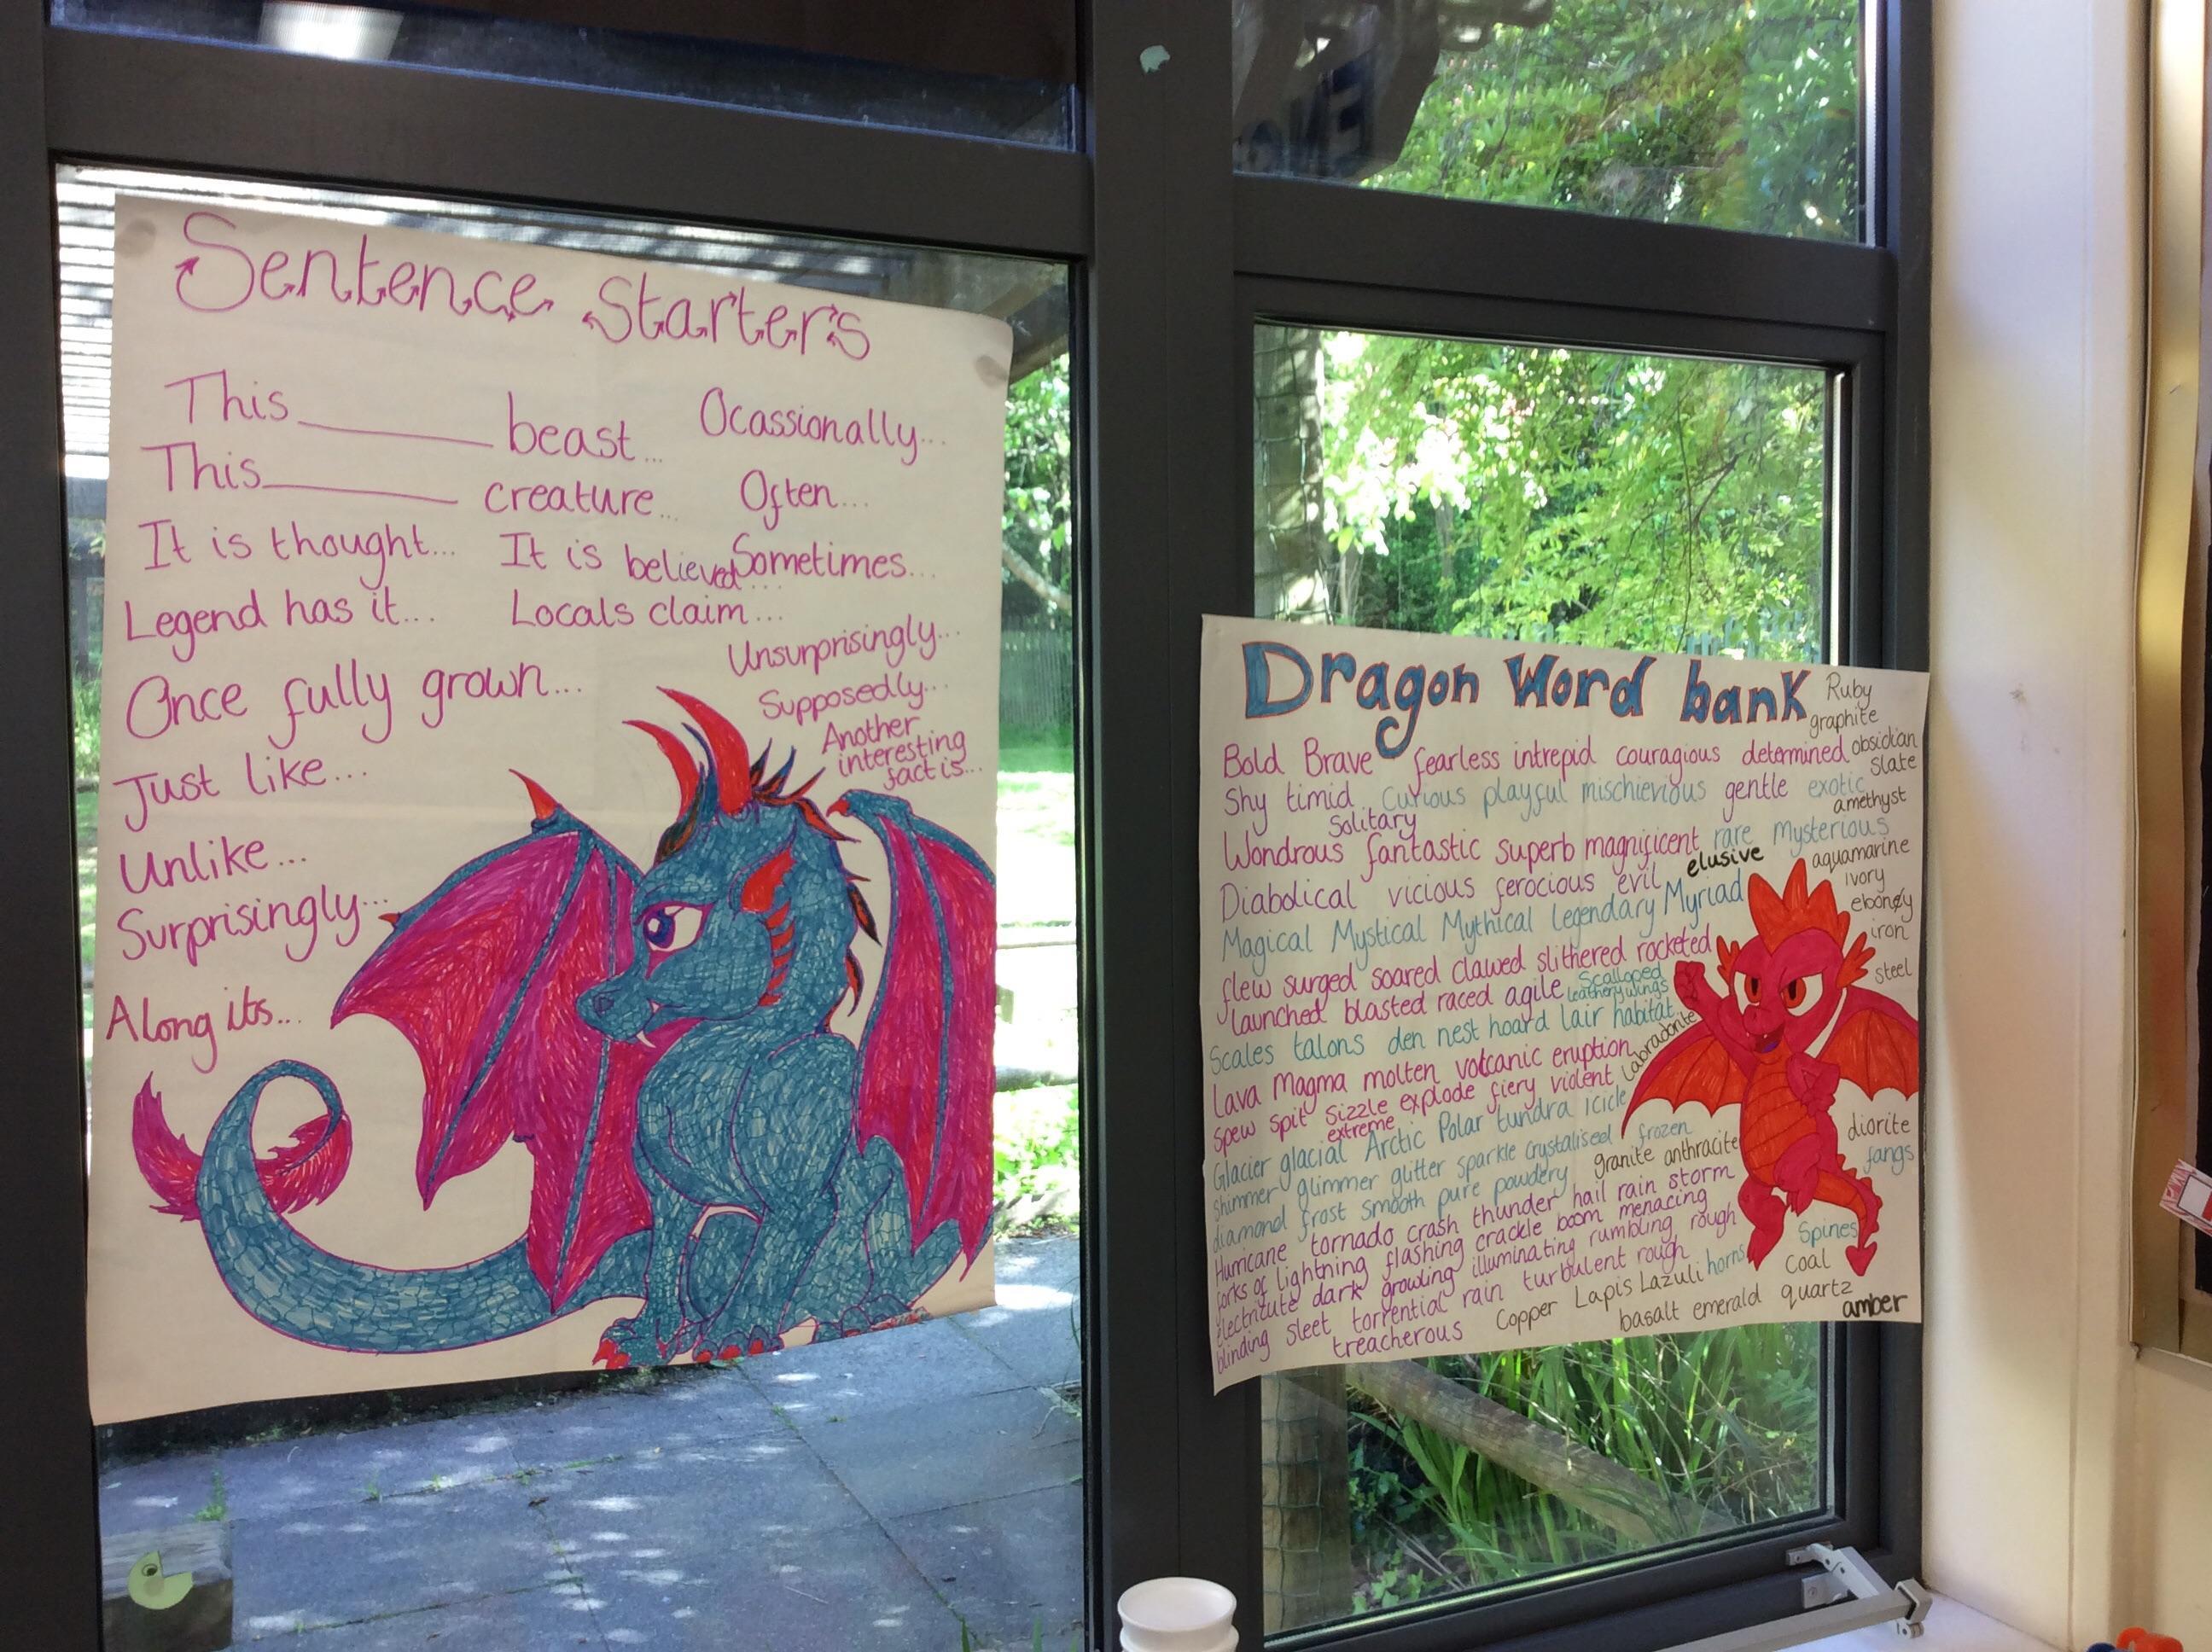 Sentence Starters
This ______ beast... Ocassionally...
This ______ creature... Often...
It is thought... It is believed... Sometimes...
Legend has it... Locals claim...
Unsurprisingly...
Once fully grown...
Supposedly...
Another
interesting
fact is...
Just like...
Unlike...
Surprisingly...
Along its...
Dragon Word bank
Ruby
graphite
Bold Brave fearless intrepid couragious determined obsidian
slate
Shy timid curious playful mischievious gentle exotic
amethyst
Solitary
Wondrous fantastic superb magnificent rare mysterious
elusive
aquamarine
Diabolical vicious ferocious evil
ivory
ebony
Magical Mystical Mythical legendary Myriad
iron
flew surged soared clawed slithered rocketed
steel
launched blasted raced agile
Scalloped
leathery wings
Scales talons den nest hoard lair habitat
Labradorite
Lava Magma molten volcanic eruption
spew spit sizzle explode fiery violent
extreme
Glacier glacial Arctic Polar tundra icicle
shimmer glimmer glitter sparkle crystalised frozen
diorite
fangs
diamond frost smooth pure powdery
granite anthracite
Hurricane tornado crash thunder hail rain storm
forks of lightning flashing crackle boom menacing
electritute dark growling illuminating rumbling rough
Spines
blinding sleet torrential rain turbulent rough horns
coal
treacherous Copper Lapis Lazuli
basalt emerald quartz
amber